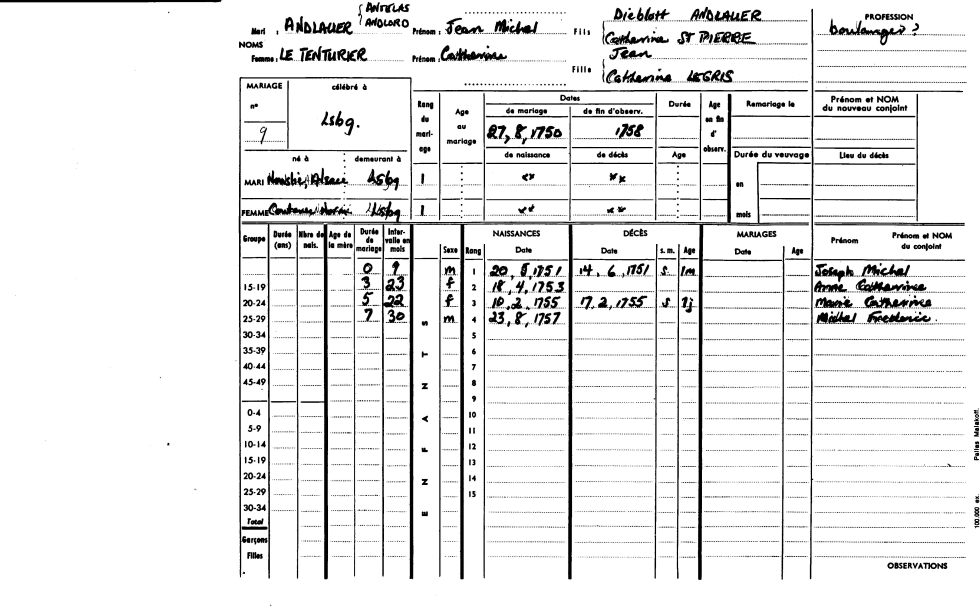 ANTELAS
ANDLORO
Mari : ANDLAUER
Prénom : Jean Michel
Fils
Dieblott ANDLAUER
Catherine ST PIERRE
PROFESSION
boulanger ?
NOMS
Femme : LE TENTURIER
Prénom : Catherine
Fille
Jean
Catherine LEGRIS
MARIAGE
célébré à
n°
9
Lsbg.
Rang du mari- age
Age au mariage
Dates
de mariage
de fin d'observ.
27, 8, 1750
1758
de naissance
de décès
Durée
Age
Age en fin d' observ.
Remariage le
Durée du veuvage
en
mois
Prénom et NOM
du nouveau conjoint
Lieu du décès
né à
demeurant à
MARI
Alsace Lsbg 1
FEMME
Lsbg 1
Groupe
Durée (ans)
Nbre de nais.
Age de la mère
Durée de mariage
Inter- valle en mois
ENFANTS
Sexe
Rang
NAISSANCES
Date
DÉCÈS
Date
s. m.
Age
MARIAGES
Date
Age
Prénom
Prénom et NOM
du conjoint
0 9 m 1 20, 5, 1751 14, 6, 1751 s 1m Joseph Michel
15-19 3 23 f 2 18, 4, 1753 Anne Catherine
20-24 5 22 f 3 10, 2, 1755 17, 2, 1755 s 7j Marie Catherine
25-29 7 30 m 4 23, 8, 1757 Michel Frederic.
30-34 5
35-39 6
40-44 7
45-49 8
9
0-4 10
5-9 11
10-14 12
15-19 13
20-24 14
25-29 15
30-34
Total
Garçons
Filles
OBSERVATIONS
100.000 ex. Pelles Malakoff.